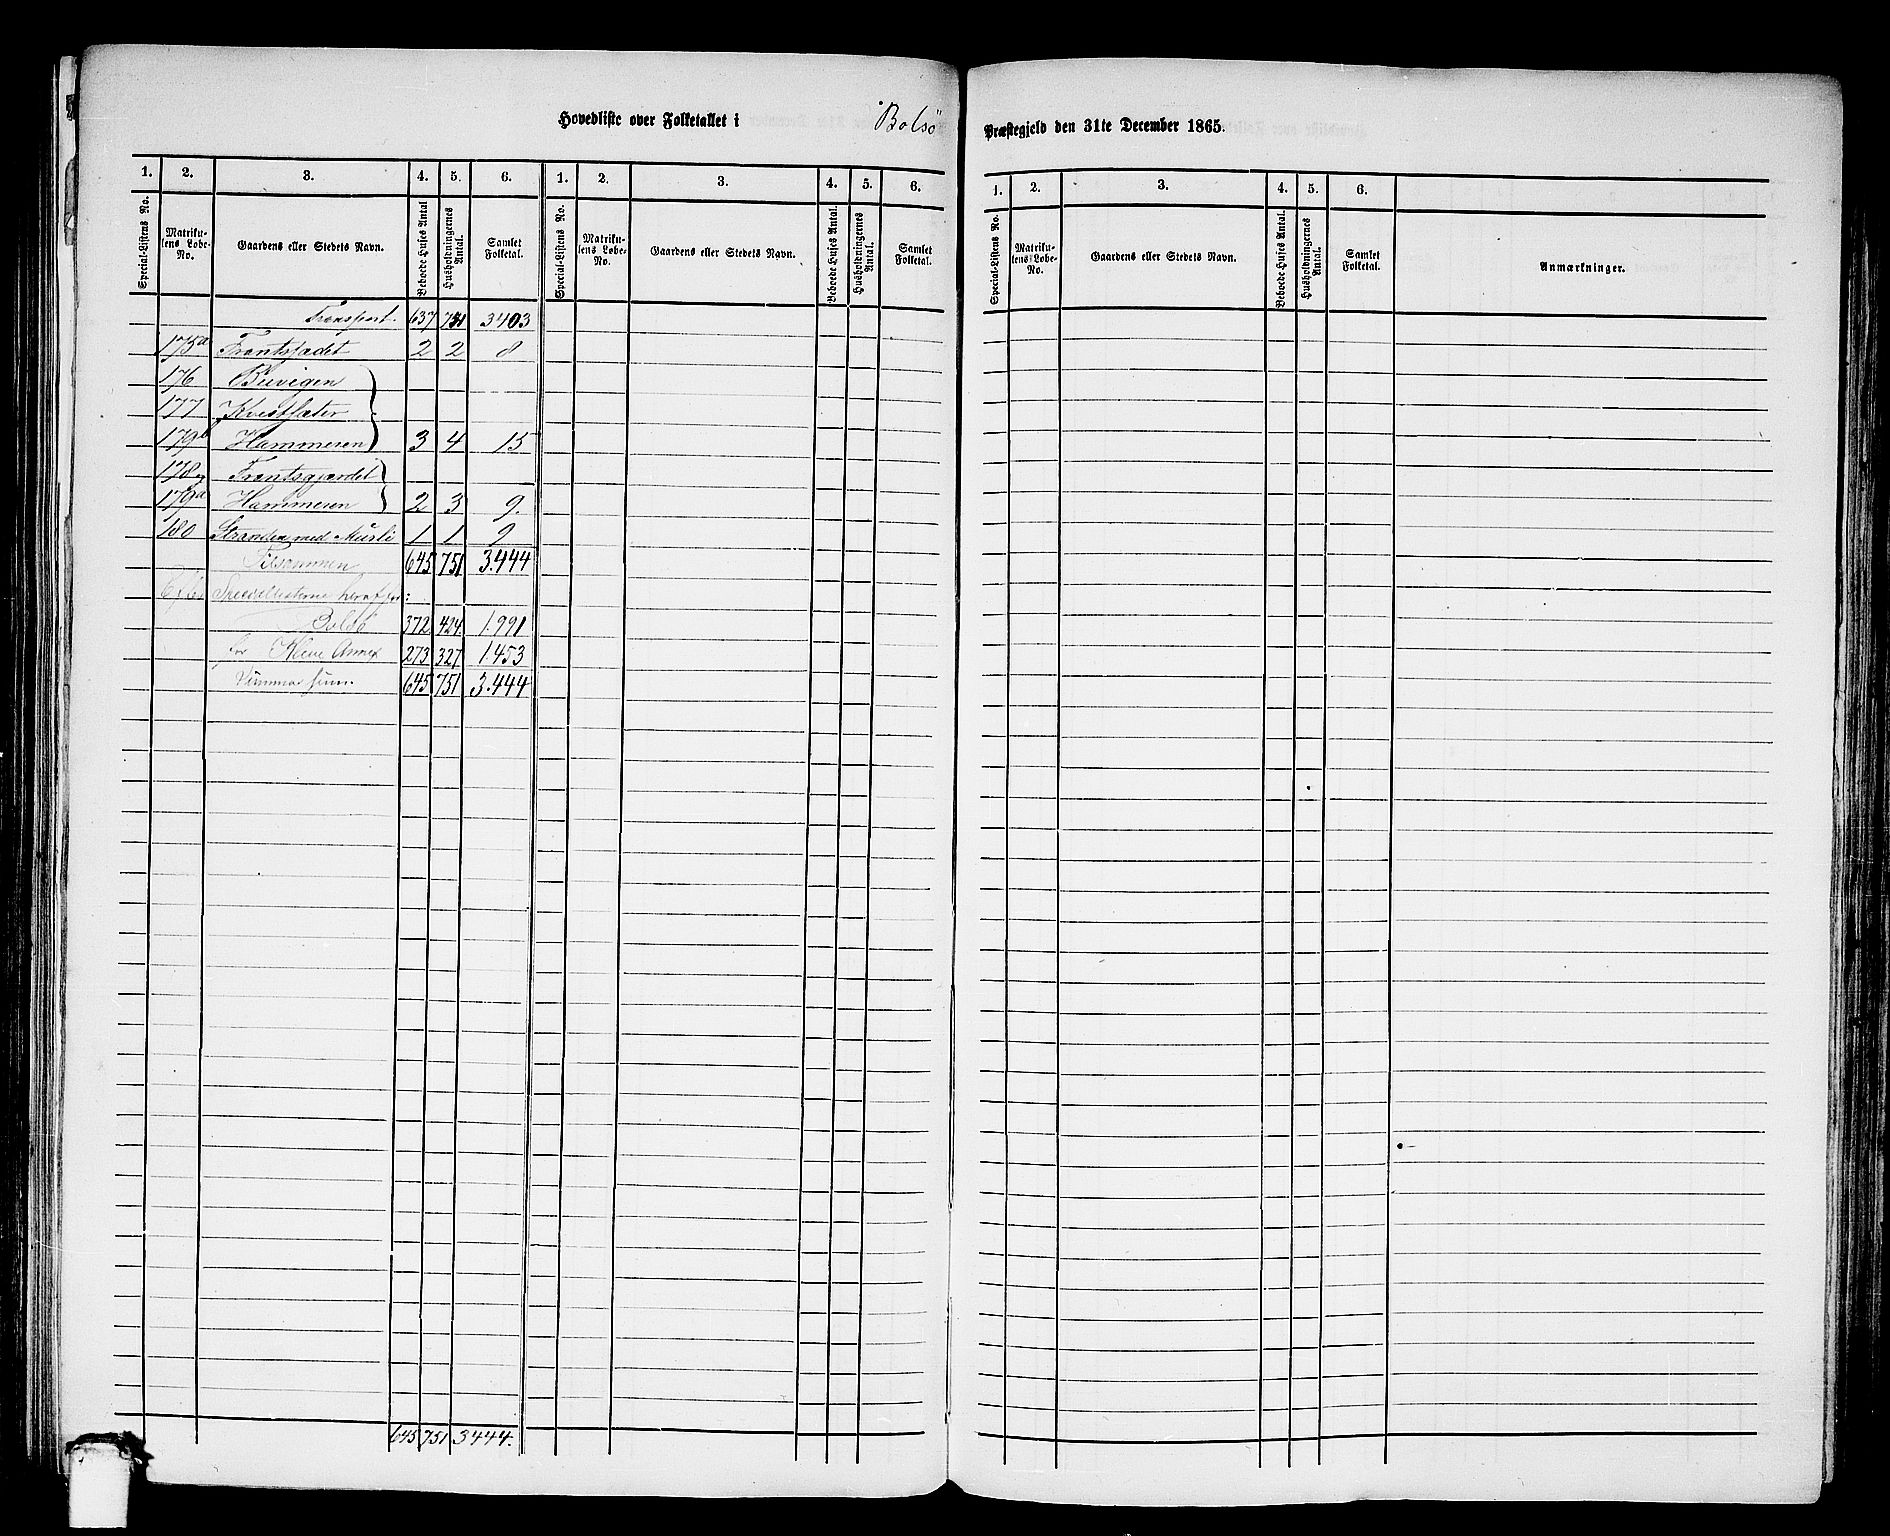 Hovedliste over Folketallet i Bolsö Præstegjeld den 31te December 1865.
1. 2. 3. 4. 5. 6. 1. 2. 3. 4. 5. 6. 1. 2. 3. 4. 5. 6.
Special-Listens No. Matrikulens Løbe-No. Gaardens eller Stedets Navn. Beboede Huses Antal Husholdningernes Antal. Samlet Folketal. Special-Listens No. Matrikulens Løbe-No. Gaardens eller Stedets Navn. Beboede Huses Antal. Husholdningernes Antal. Samlet Folketal. Special-Listens No. Matrikulens Løbe-No. Gaardens eller Stedets Navn. Beboede Huses Antal. Husholdningernes Antal. Samlet Folketal. Anmærkninger.
Transport. 637 3403
175a 2 2 8
176
177
179b Hammeren 3 4 15
178
179a Hammeren 2 3 9.
180 Stranden med 1 1 9
Tilsammen 645 751 3.444
Efter Speciellisterne heraf for:
Bolsö 372 424. 1.991
for Kleve Annex 273 327. 1.453
645 751 3.444
645 751 3444.